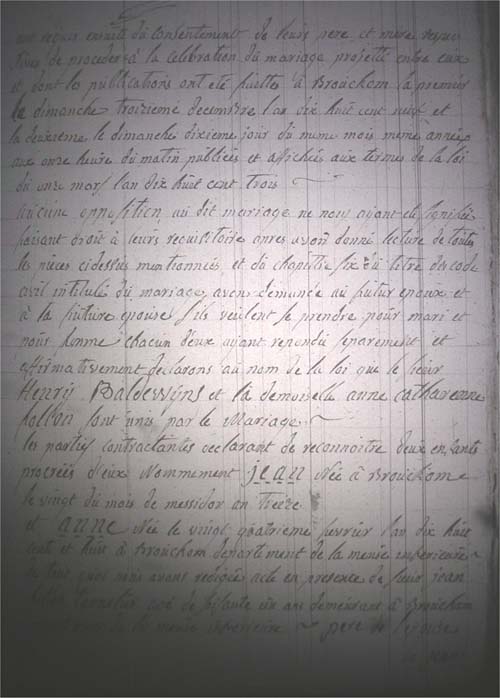 ont requis ensuite du consentement de leurs pere et mere respec
tives de proceder à la celebration du mariage projetté entre eux
et dont les publications ont été faittes à Brouckom la premier
le dimanche troizieme decembre l'an dix huit cent neuf et
la deuxieme le dimanche dixieme jour du meme mois meme année
aux onze heure du matin publiées et affichées aux termes de la loi
du onze mars l'an dix huit cent trois
Aucune opposition au dit mariage ne nous ayant été signifiée
faisant droit à leurs requisitoire apres avoir donné lecture de toutes
les pièces cidessus mentionnées et du chapittre six du titre du code
civil intitulé du mariage avons demandé au futur epoux et
à la future epouse s'ils veulent se prendre pour mari et
pour femme chacun d'eux ayant repondu separement et
affirmativement declarons au nom de la loi que le sieur
Henry Baldewyns et la demoiselle anne catharenne
sont unis par le Mariage
les parties contractantes declarant de reconnoitre deux enfants
procrées d'eux Nommement jean Née à Brouckom
le vingt du mois de messidor an treize
et anne Née le vingt quatrieme fevrier l'an dix huit
cent et huit à Brouckom departement de la meuse inferieure
de tout quoi nous avons redigée acte en presence de sieur jean
agé de ans demeurant à Brouckom
de la meuse inferieure pere de l'epouse